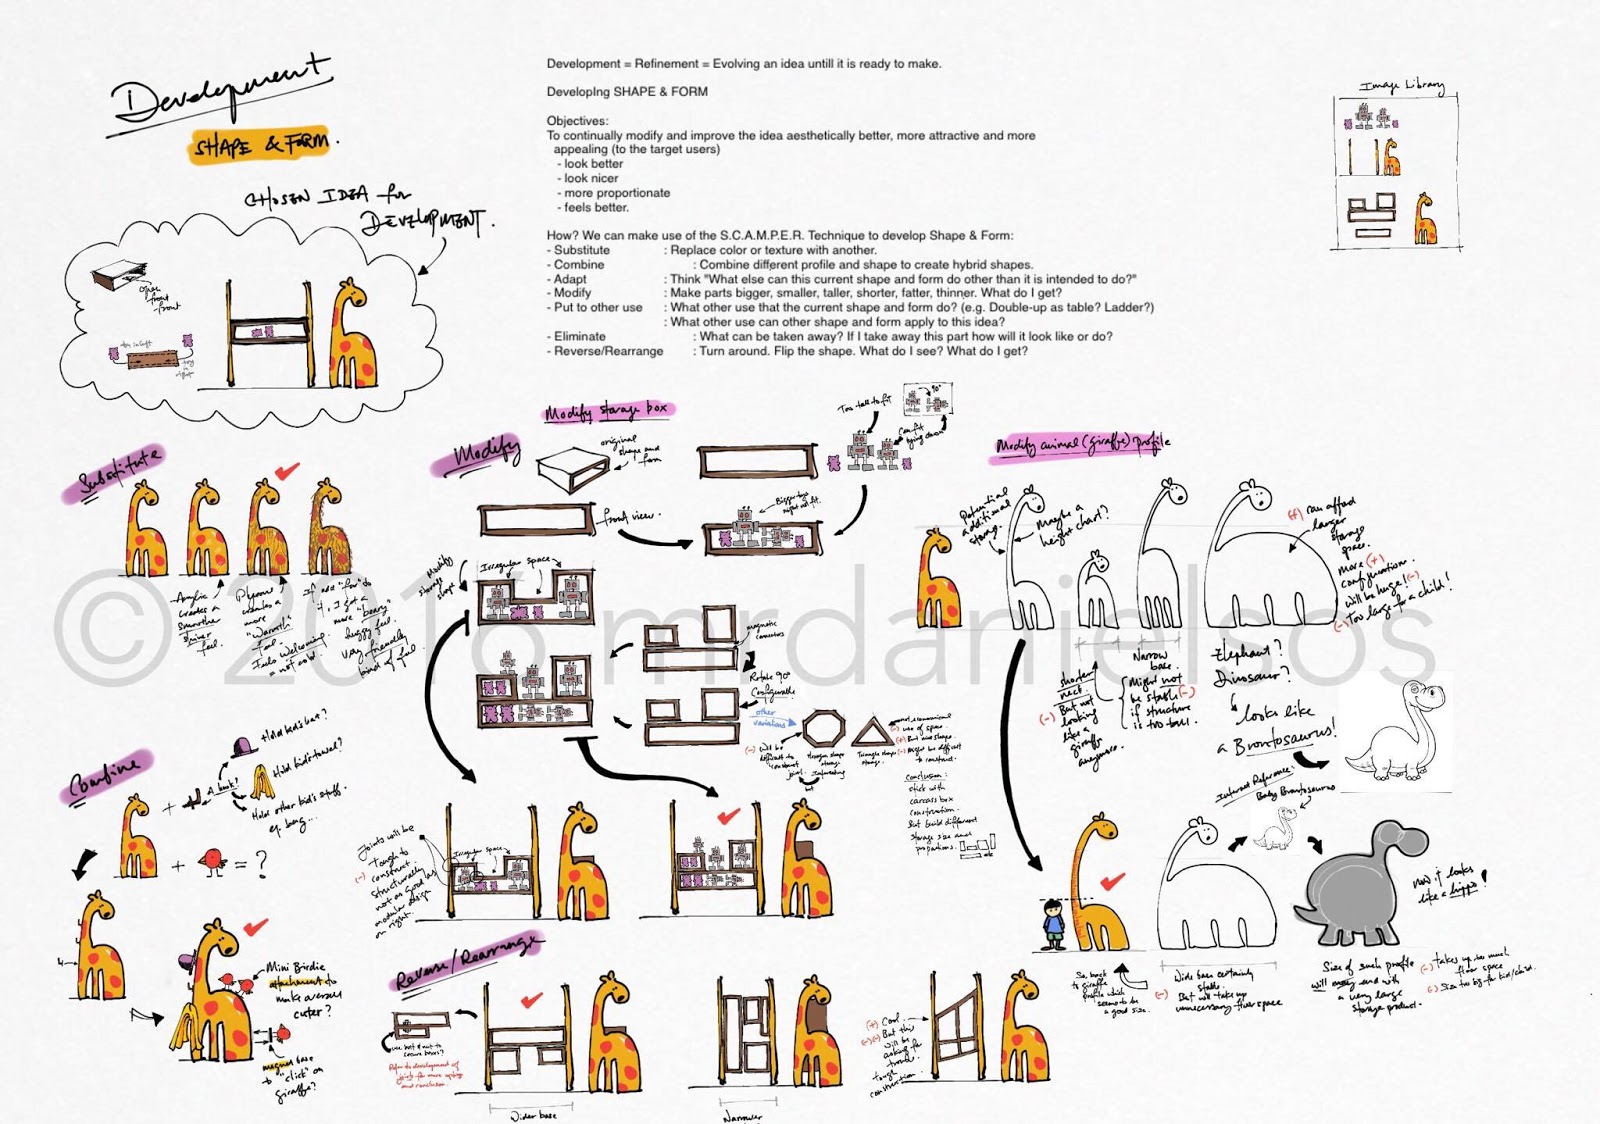 Development
SHAPE & FORM.
CHOSEN IDEA for
DEVELOPMENT.
Development = Refinement = Evolving an idea untill it is ready to make.
DevelopIng SHAPE & FORM
Objectives:
To continually modify and improve the idea aesthetically better, more attractive and more
appealing (to the target users)
- look better
- look nicer
- more proportionate
- feels better.
How? We can make use of the S.C.A.M.P.E.R. Technique to develop Shape & Form:
- Substitute : Replace color or texture with another.
- Combine : Combine different profile and shape to create hybrid shapes.
- Adapt : Think "What else can this current shape and form do other than it is intended to do?"
- Modify : Make parts bigger, smaller, taller, shorter, fatter, thinner. What do I get?
- Put to other use : What other use that the current shape and form do? (e.g. Double-up as table? Ladder?)
: What other use can other shape and form apply to this idea?
- Eliminate : What can be taken away? If I take away this part how will it look like or do?
- Reverse/Rearrange : Turn around. Flip the shape. What do I see? What do I get?
Image Library
Open
front
Substitute
Acrylic
creates a
smoother
shiner
feel.
creates a
more
"Warmth"
feel.
Feels welcoming
& not cold.
If add "fur" to
it. I get a
more "beary"
huggy feel.
Very friendly
kind of feel.
Modify
Modify storage box
original
shape and
form
front view.
Too tall to fit
90°
Can fit
lying down
Modify
storage
shape
Irregular space
magnetic
connectors
Rotate 90°
Configurable
other
variations
(-) Will be
difficult to
construct
joint.
Hexagon shape
storage
Interesting
Triangle shape
storage
use of space.
(+) But nice shape.
(-) Might be difficult
to construct.
Conclusion:
stick with
carcass box
construction.
But build different
storage size and
proportions.
Joints will be
tough to
(-) construct.
Structurally
not as good as
modular design
on right.
Irregular space
Modify animal (giraffe) profile
Potential
additional
storage
Maybe a
height chart?
(+) can afford
larger
storage
space.
more (+)
configuration.
Will be huge! (-)
(-) Too large for a child!
shorter
neck.
(-) But not
looking
like a
giraffe
anymore.
Narrow
base.
Might not
be stable (-)
if structure
is too tall.
Elephant?
Dinosaur?
looks like
a Brontosaurus!
Internet Reference:
Baby Brontosaurus
So, back
to giraffe
profile which
seems to be
a good size.
Wide base certainly
stable.
(-) But will take up
unnecessary floor space
Now it looks
like a hippo!
Size of such profile
will end with
a very large
storage product.
(-) takes up too much
floor space
(-) Size too big for kid/child.
Combine
A hook?
Hold kid's hat?
Hold kid's towel?
Holds other kid's stuff.
eg. bag...
+
+ = ?
Mini Birdie
attachment to
make overall
cuter?
magnet base
to "click" on
giraffe?
Reverse/Rearrange
use bolt & nut to
secure boxes?
Refer to development of
joints for more
and conclusion.
Wider base
Narrower
(+) Cool.
(-)(-) But this
will be
asking for
trouble.
tough
construction
© 2016 mr.danielsos